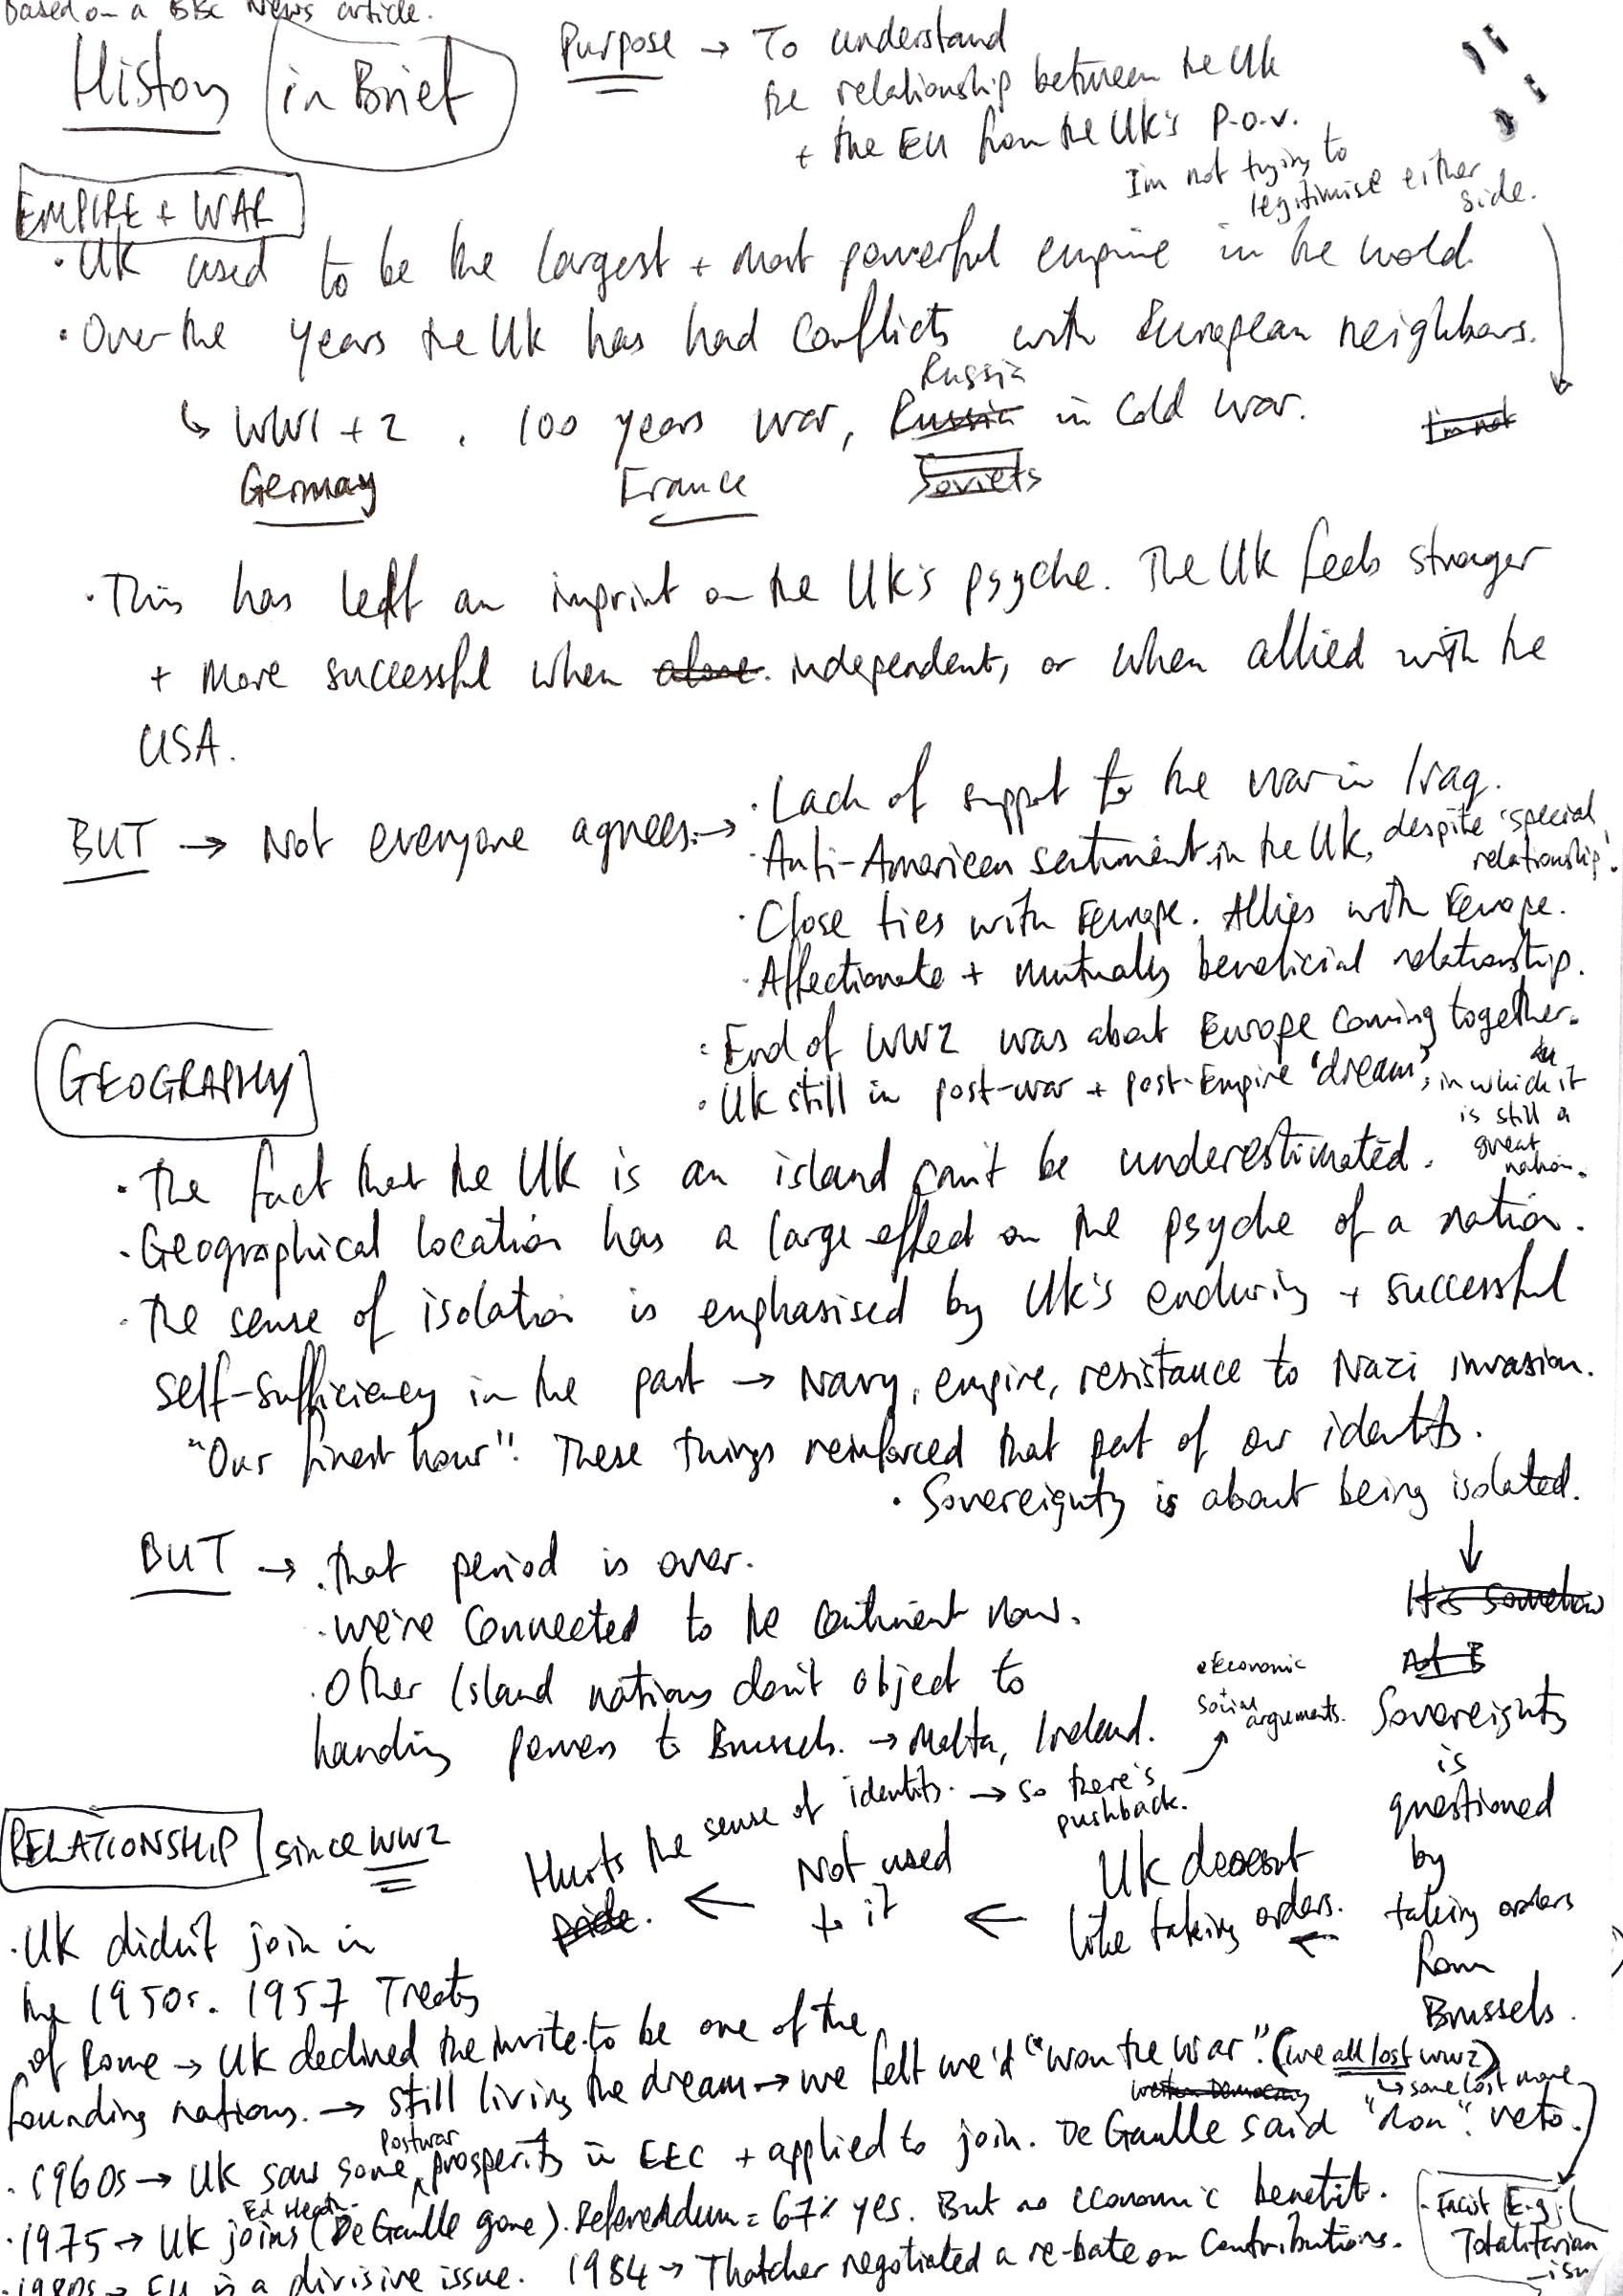 based on a BBC News article.
History in Brief
Purpose → To understand
the relationship between the UK
+ the EU from the UK's p.o.v.
I'm not trying to
legitimise either
side.
EMPIRE + WAR
· UK used to be the largest + most powerful empire in the world.
· Over the years the UK has had conflicts with European neighbours.
Russia
↳ WW1 + 2, 100 years war, Russia in Cold War.
I'm not
Germany France Soviets
· This has left an imprint on the UK's psyche. The UK feels stronger
+ more successful when alone. independent, or when allied with the
USA.
BUT → Not everyone agrees. →
· Lack of support to the war in Iraq.
· Anti-American sentiment in the UK, despite 'special
relationship'.
· Close ties with Europe. Allies with Europe.
· Affectionate + mutually beneficial relationship.
· End of WW2 was about Europe coming together.
· UK still in post-war + post-Empire 'dream', in which it
is still a
great
nation.
GEOGRAPHY
· The fact that the UK is an island can't be underestimated.
· Geographical location has a large effect on the psyche of a nation.
· The sense of isolation is emphasised by UK's enduring + successful
self-sufficiency in the past → Navy, empire, resistance to Nazi invasion.
"Our finest hour". These things reinforced that part of our identity.
· Sovereignty is about being isolated.
↓
It is somehow
Not
Sovereignty
is
questioned
by
taking orders
from
Brussels.
BUT → · that period is over.
· We're connected to the continent now.
· Other Island nations don't object to
handing powers to Brussels. → Malta, Ireland.
← UK doesn't
like taking orders.
← Not used
to it
← Hurts the sense of identity. → so there's
pushback.
pride.
economic
+
social
arguments.
RELATIONSHIP since WW2
· UK didn't join in
the 1950s. 1957 Treaty
of Rome → UK declined the invite to be one of the
founding nations. → still living the dream → we felt we'd "won the war". (we all lost WW2)
Western Democracy
↳ some lost more
· 1960s → UK saw some postwar prosperity in EEC + applied to join. De Gaulle said "non". veto.
Ed Heath
· 1975 → UK joins (De Gaulle gone). Referendum = 67% yes. But no economic benefit.
· 1980s → EU is a divisive issue. 1984 → Thatcher negotiated a re-bate on contributions.
· Facist E.g.
Totalitarian
-ism